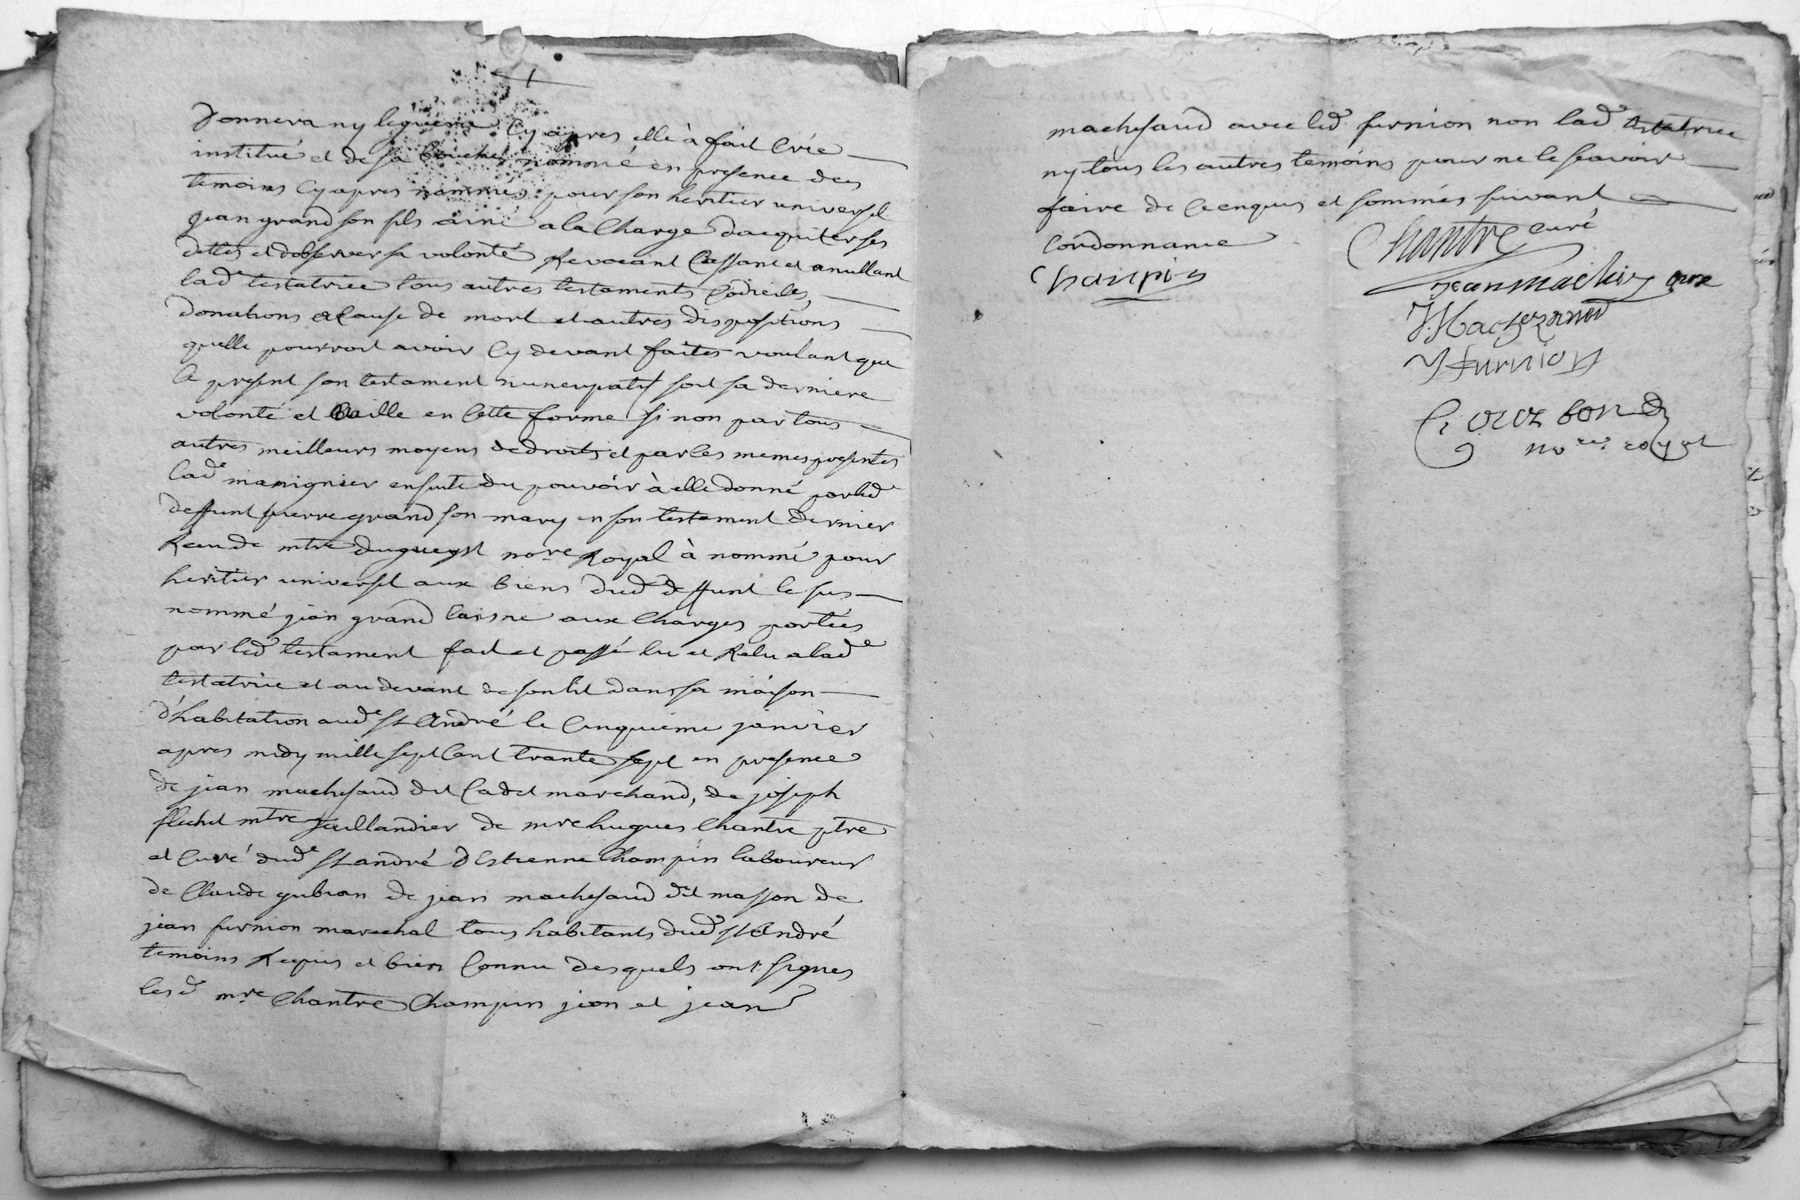 donnera ny leguera cy apres elle à fait Crée
institué et de sa bouche nommé en presence des
temoins Cy apres nommés pour son heritier universel
jean grand son fils ainé a la Charge dacquiter ses
dettes et dobserver sa volonté Revocant Cassant et anullant
lad.e testatrice tous autres testaments Codiciles,
donations a Cause de mort et autres dispositions
quelle pourroit avoir Cy devant faites voulant que
le present son testament nuncupatif soit sa derniere
volonté et Vaille en Cette forme si non par tous
autres meilleurs moyens de droits et par les memes presentes
Lad.e ensuite du pouvoir à elle donné par led
deffunt pierre grand son mary en son testament dernier
Receu de mtre no.re Royal à nommé pour
heritier universel aux biens dud deffunt le sus
nommé jean grand laisné aux Charges portées
par led testament fait et passé lu et Relu a lad.e
testatrice et au devant de son lit dans sa maison
d'habitation aud.e St André le Cinquieme janvier
apres midy mille sept Cent trante sept en presence
de jean machesaud dit Cadet marchand, de joseph
flechet mtre taillandier de mre hugues Chantre ptre
et Curé dud.e St andré d'Estienne Champin laboureur
de Claude gubian de jean machesaud dit masson de
jean furnion marechal tous habitants dud St André
temoins Requis et bien Connu desquels ont signes
les d mre Chantre Champin jean et jean
machesaud avec led furnion non lad testatrice
ny tous les autres temoins pour ne le scavoir
faire de Ce enquis et sommés suivant
Lordonnance
Chantre curé
Champin
Jean
J Machezaud
J furnion
no.re royal